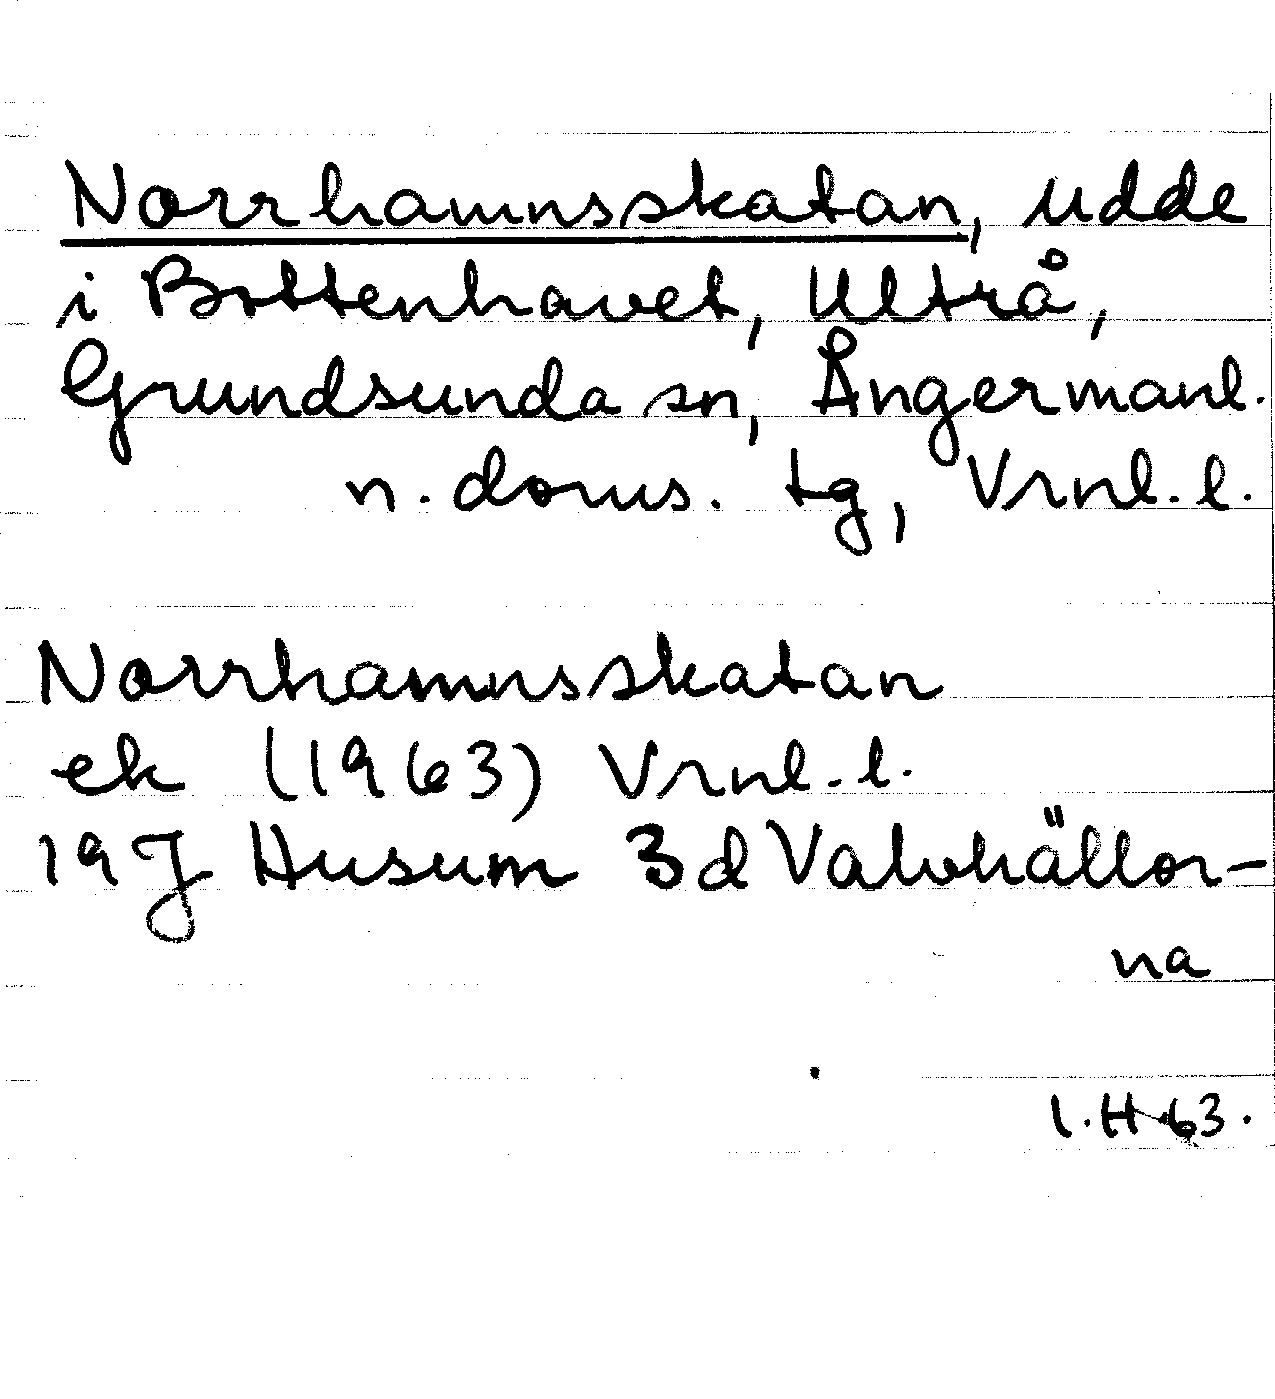 Norrhamnsskatan, udde
i Bottenhavet, Ultrå,
Grundsunda sn, Ångermanl.
n. doms. tg, Vrnl. l.
Norrhamnsskatan
ek (1963) Vrnl. l.
19J Husum 3d Valvhällor-
na
I.H 63.